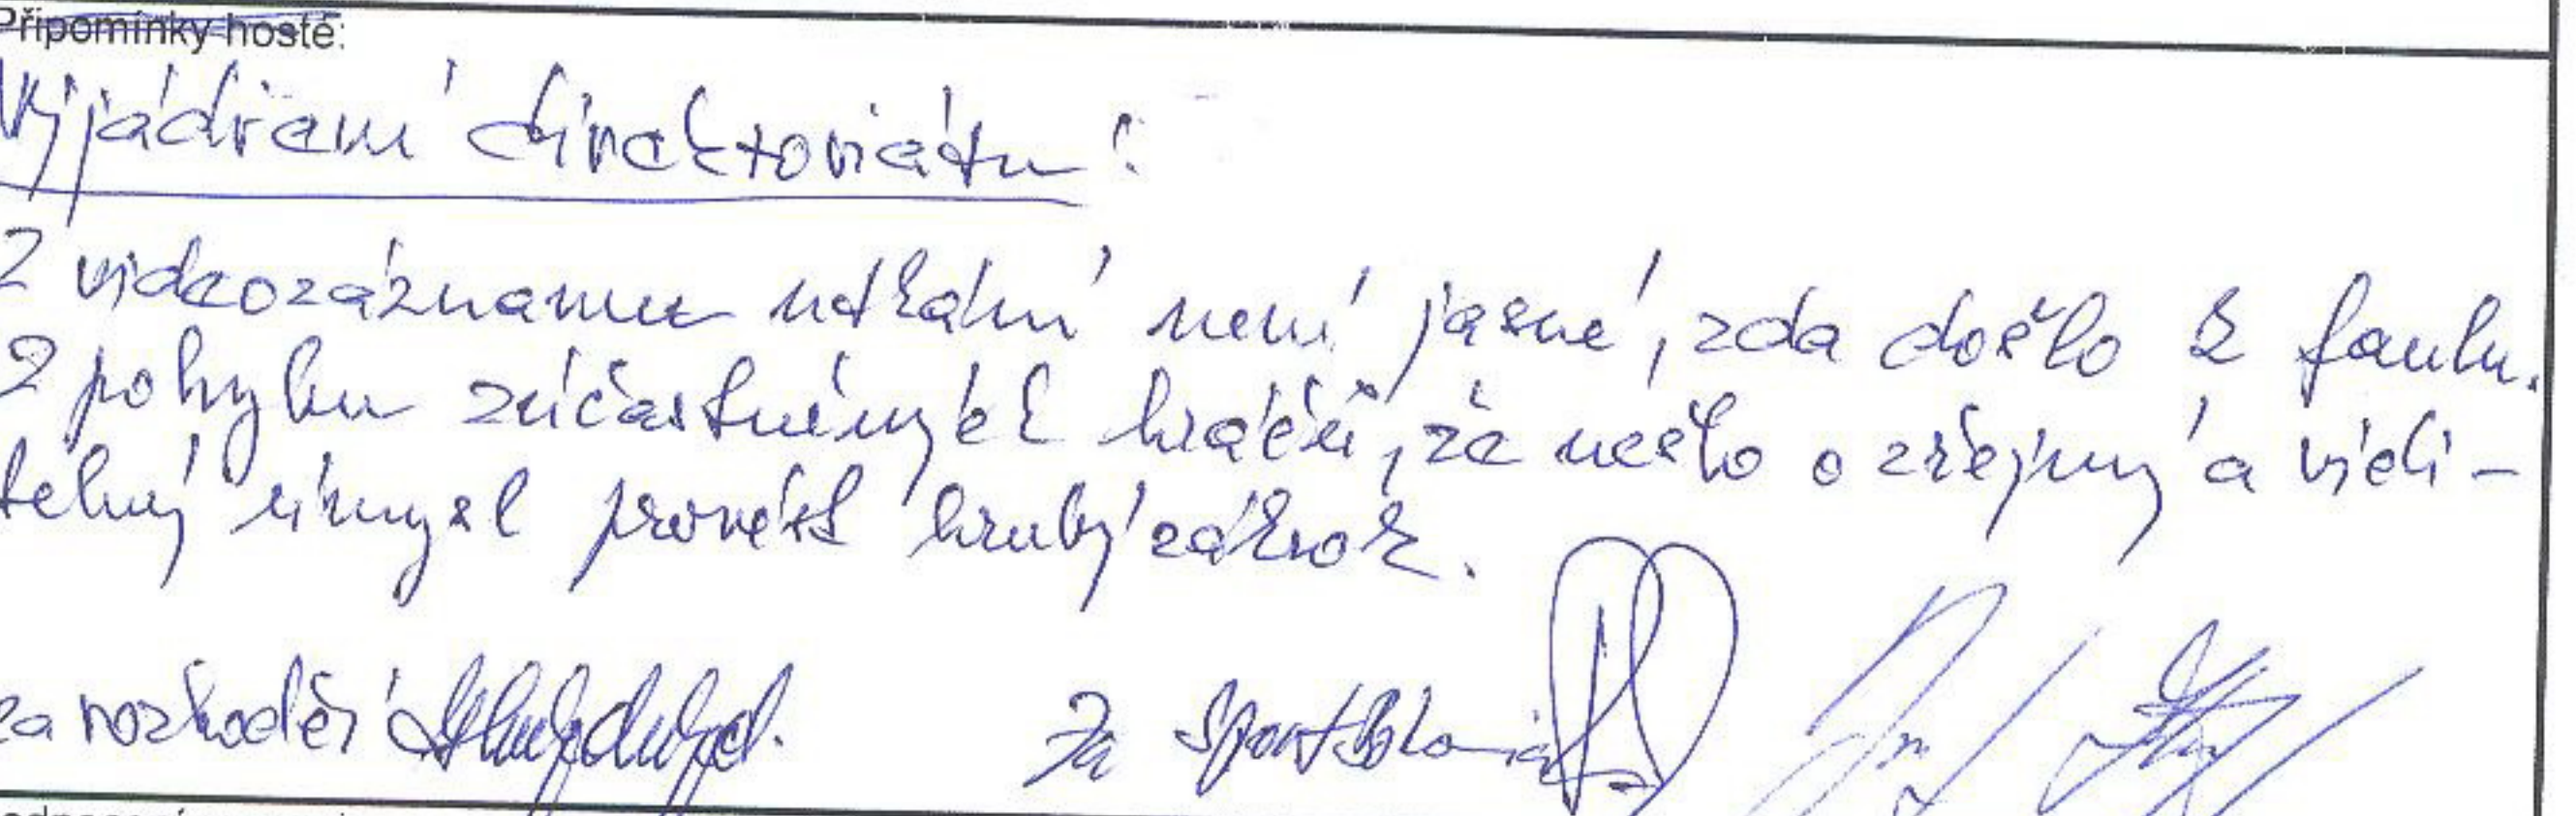 Připomínky hosté:
Vyjádření direktoriátu:
Z videozáznamu utkání není jasné, zda došlo k faulu.
Z pohybu zúčastněných hráčů, že nešlo o zřejmý a vidi-
telný úmysl provést hrubý zákrok.
za rozhodčí
Za sport.